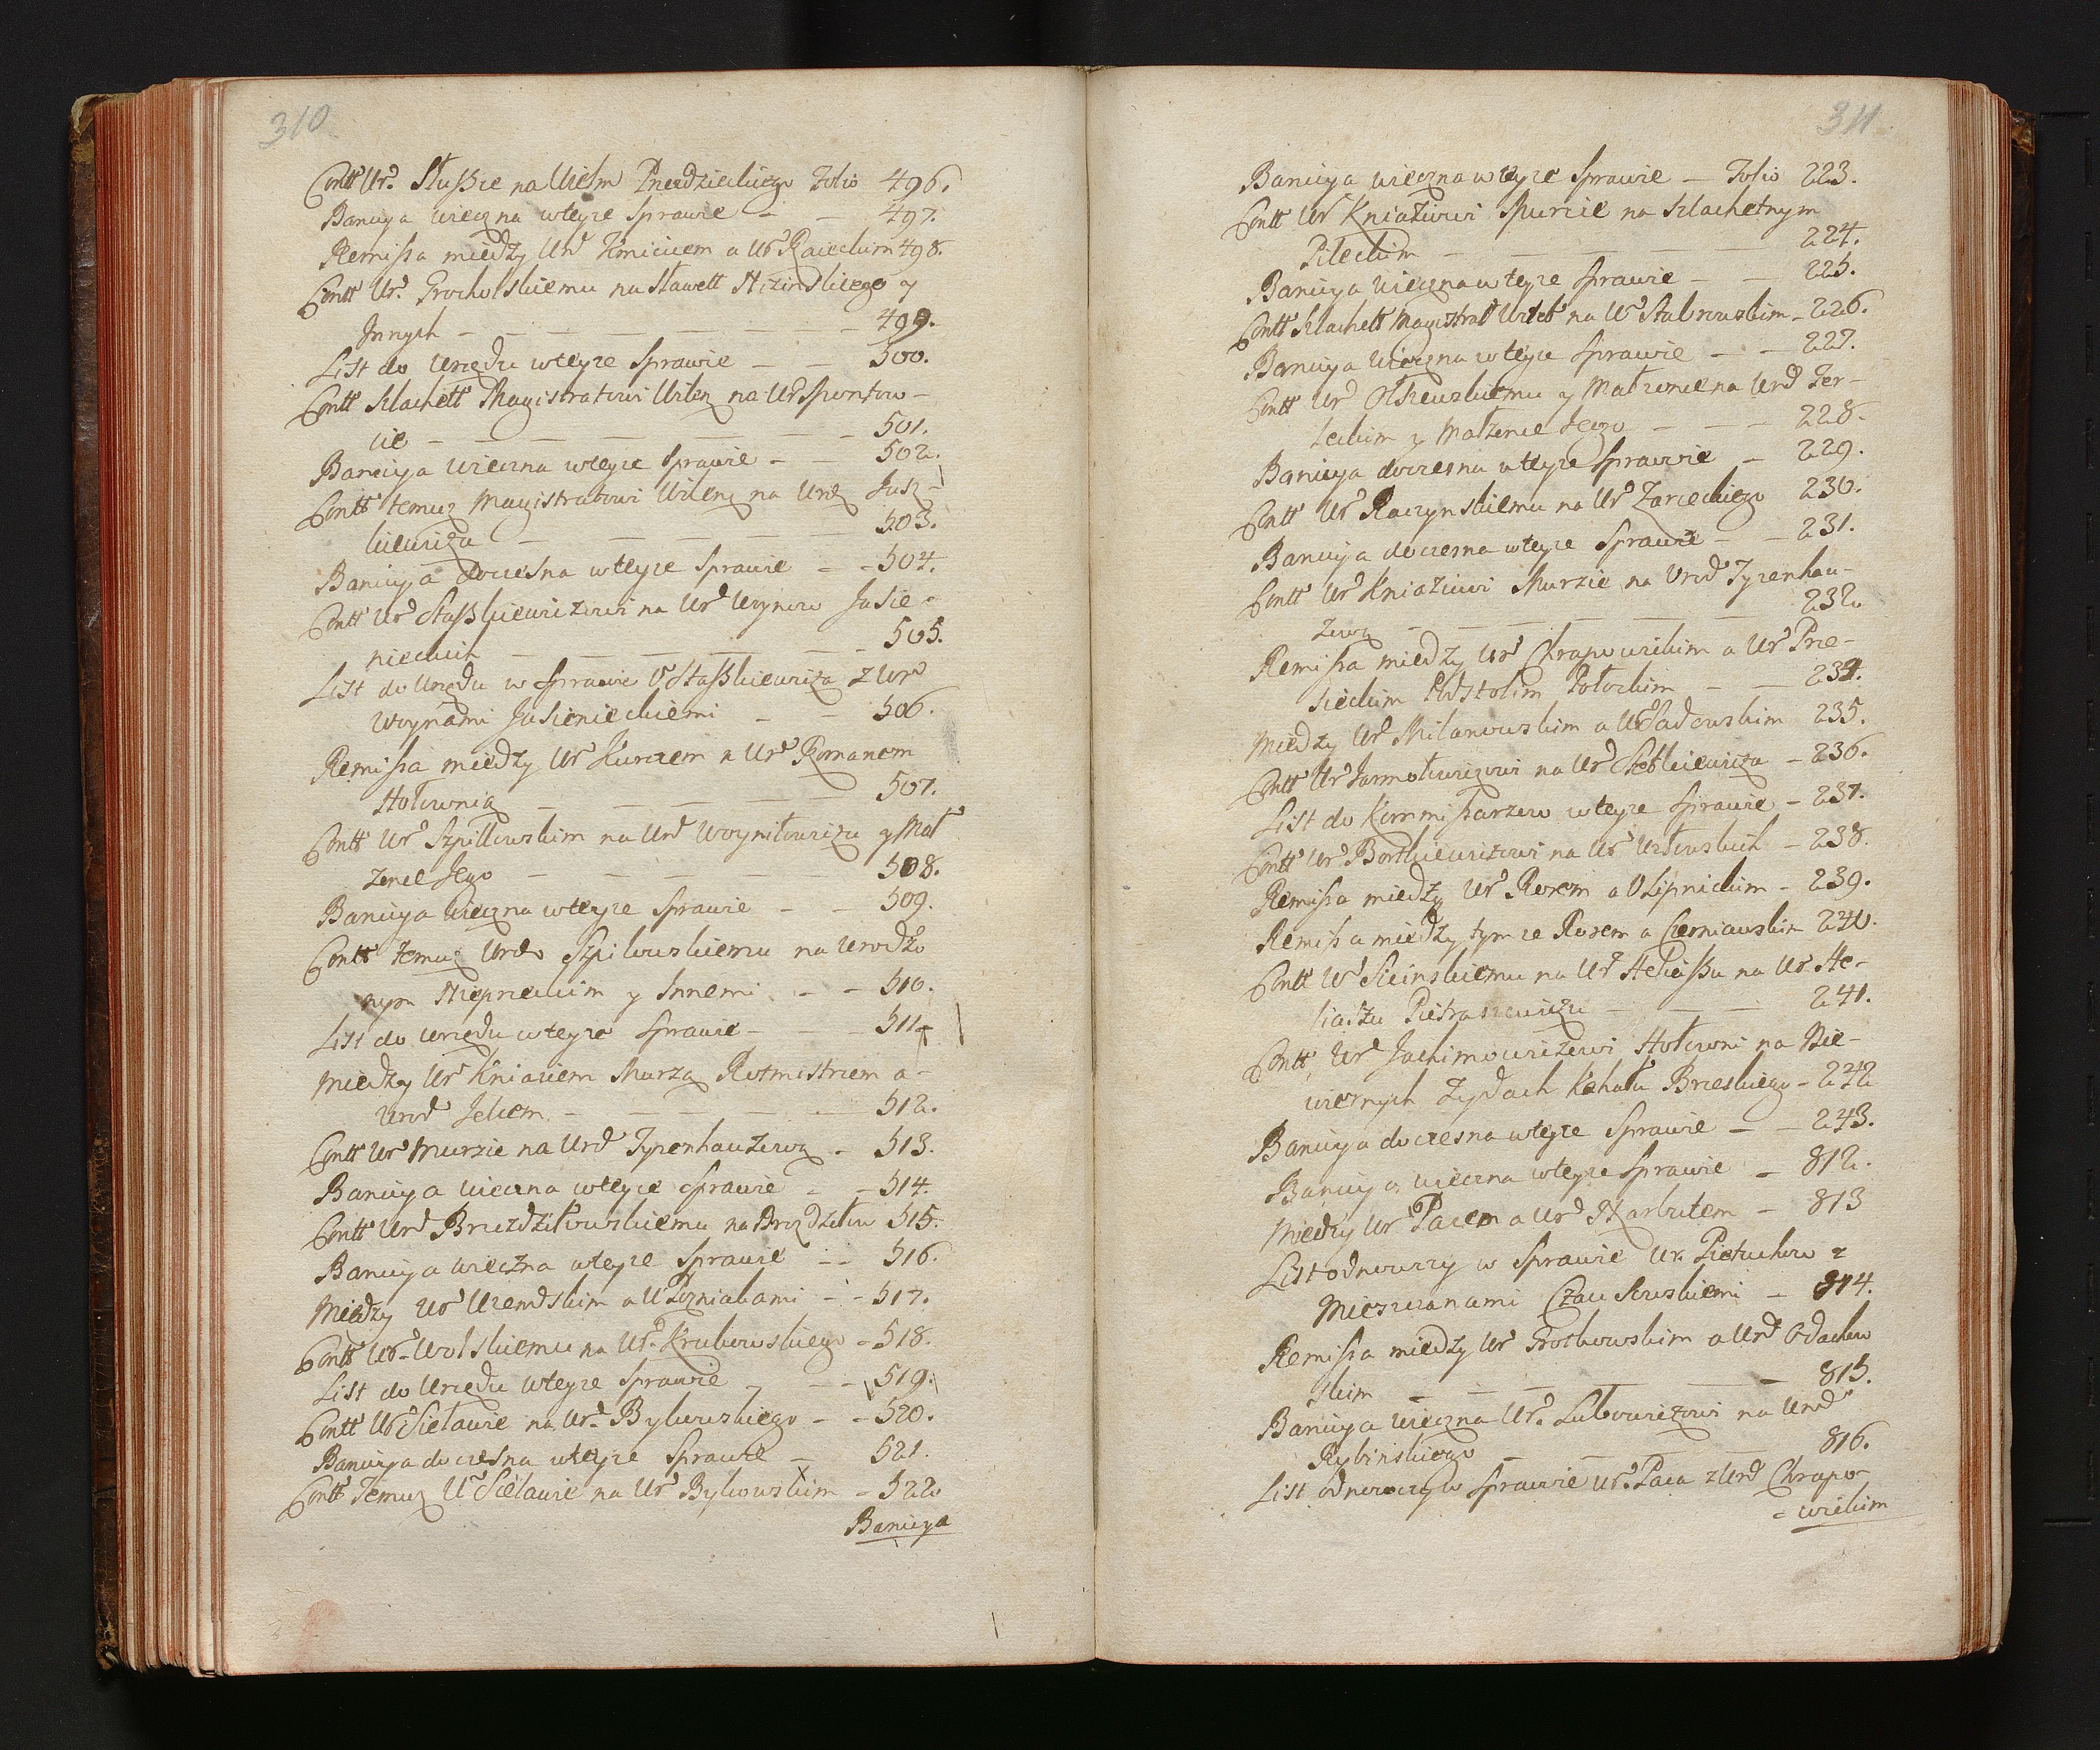 310
Contt Ur. Słuszce na Wielm Przezdzieckiego Folio 496.
Banicya wieczna w teyze Sprawie - - 497.
Remissa miedzy Urd Kmicicem a Ur Raieckim 498.
Contt Ur. Grocholskiemu na Sławett Nizinskiego y
Innych - - - - - - 499.
List do Urzędu w teyze Sprawie - - 500.
Contt Szlachett Magistratowi Wilen na Ur Spontow-
cie - - - - - - 501.
Banicya wieczna w teyze Sprawie - - 502.
Contt temuz Magistratowi Wilen na Urz Jusz-
kiewicza - - - - - 503.
Banicya doczesna w teyze Sprawie - - 504.
Contt Ur Staszkiewiczowi na Urd Woynow Jasie-
nieckich - - - - - 505.
List do Urzędu w Sprawie U Staszkiewicza z Ur
Woynami Jasienieckiemi - - 506.
Remissa miedzy Ur Kurczem a Ur Romanem
Hołownią - - - - 507.
Contt Ur Szpillowskim na Urd Woyniłowiczu y Mał
zence Jego - - - - 508.
Banicya wieczna w teyze Sprawie - - 509.
Contt temuz Urdo Szpilowskiemu na Urodzo
nym Nieprzeckim y Innemi - - 510.
List do Urzędu w teyze Sprawie - - 511.
Miedzy Ur Kniaziem Murzą Rotmistrzem a-
Urod Jelcem - - - - 512.
Contt Ur Murzie na Urd Tyzenhauzową - 513.
Banicya wieczna w teyze Sprawie - - 514.
Contt Urd Bruzdziłowskiemu na Bruzdziłow 515.
Banicya wieczna w teyze Sprawie - - 516.
Miedzy Ur Uzemdskim a U Pozniakami - - 517.
Contt Ur. Wolskiemu na Ur. Krukowskiego - 518.
List do Urzędu w teyze Sprawie - - 519.
Contt Ur Sielawie na Ur. Bykowskiego - - 520.
Banicya doczesna w teyze Sprawie - 521.
Contt Temuz U Sielawie na Ur Bykowskim - 522
Banicya
311
Banicya wieczna w teyze Sprawie - Folio 223.
Contt Ur Kniaziowi Murzie na Szlachetnym
Pileckim - - - - 224.
Banicya wieczna w teyze Sprawie - - 225.
Contt Szlachett Magistrat Witeb na Ur Stabrowskim - 226.
Banicya wieczna w teyze Sprawie - - 227.
Contt Ur Olszewskiemu y Małzonce na Urd Ter-
leckim y Małzence Jego - - - 228.
Banicya doczesna w teyze Sprawie - 229.
Contt Ur Raczynskiemu na Ur Zareckiego 230.
Banicya doczesna w teyze Sprawie - - 231.
Contt Ur Kniaziowi Murzie na Urod Tyzenhau-
zową - - - - 232
Remissa miedzy Ur Chrapowickim a Ur Prze-
sieckim Podstolim Połockim - - 234.
Miedzy Ur Milanowskim a U Sadowskim 235.
Contt Ur Jarmołowiczowi na Ur Petkiewicza - 236.
List do Kommissarzow w teyze Sprawie - 237.
Contt Ur Bortkiewiczowi na Ur Wolskich - 238.
Remissa miedzy Ur Rosem a U Lipnickim - 239.
Remissa miedzy tymze Rosem a Czerniawskim 240.
Contt Ur Kcinskiemu na Ur Heliaszu na Ur. He-
liaszu Pietraszewiczu - - - 241.
Contt Ur Jachimowiczowi Hołowni na Nie-
wiernych Zydach Kahału Brzeskiego - 242
Banicya doczesna w teyze Sprawie - - 243.
Banicya wieczna w teyze Sprawie - 812.
Miedzy Ur Pacem a Urd Narbutem - 813
List odnowczy w Sprawie Ur. Pietuchow z
Mieszczanami Czauskiemi - 814.
Remissa miedzy Ur Grothowskim a Urd Odachow
skim - - - - - 815.
Banicya wieczna Ur. Lubowiczowi na Urd
Rybinskiego - - - - 816.
List odnowczy w Sprawie Ur. Paca z Urd Chrapo-
= wickim